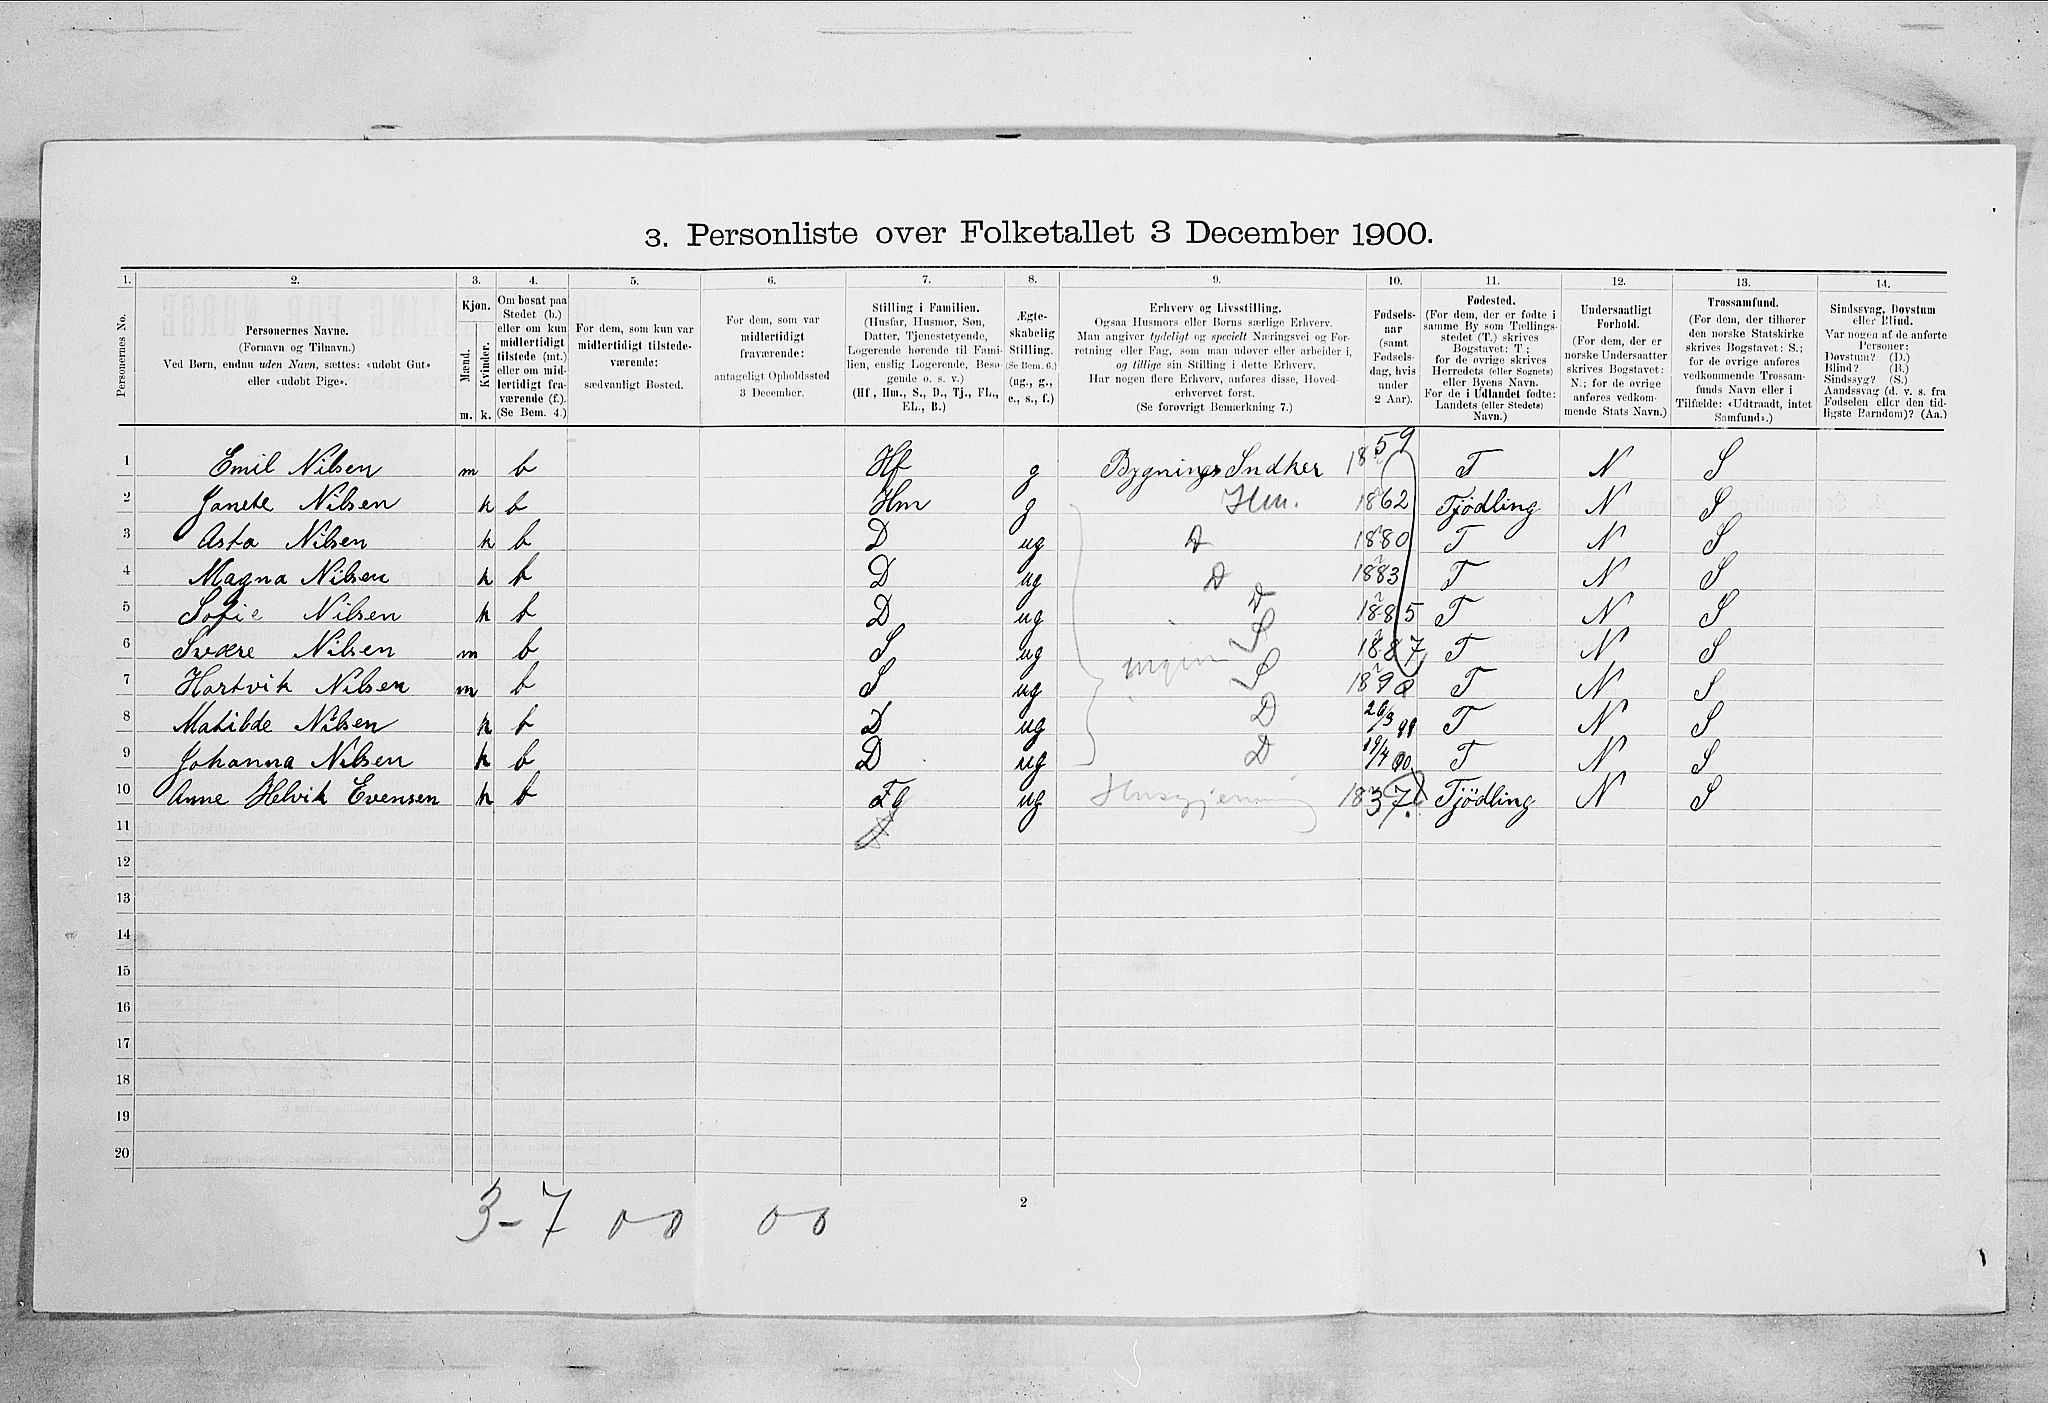 3. Personliste over Folketallet 3 December 1900.
1. 2. 3. 4. 5. 6. 7. 8. 9. 10. 11. 12. 13. 14.
Personernes No.
Personernes Navne.
(Fornavn og Tilnavn.)
Ved Børn, endnu uden Navn, sættes: «udøbt Gut»
eller «udøbt Pige».
Kjøn.
Mænd.
Kvinder.
m. k.
Om bosat paa
Stedet (b.)
eller om kun
midlertidigt
tilstede (mt.)
eller om mid-
lertidigt fra-
værende (f.).
(Se Bem. 4.)
For dem, som kun var
midlertidigt tilstede-
værende:
sædvanligt Bosted.
For dem, som var
midlertidigt
fraværende:
antageligt Opholdssted
3 December.
Stilling i Familien.
(Husfar, Husmor, Søn,
Datter, Tjenestetyende,
Logerende hørende til Fami-
lien, enslig Logerende, Besø-
gende o. s. v.)
(Hf., Hm., S., D., Tj., FL.,
EL., B.)
Ægte-
skabelig
Stilling.
(Se Bem. 6.)
(ug., g.,
e., s., f.)
Erhverv og Livsstilling.
Ogsaa Husmors eller Børns særlige Erhverv.
Man angiver tydeligt og specielt Næringsvei og For-
retning eller Fag, som man udøver eller arbeider i,
og tillige sin Stilling i dette Erhverv.
Har nogen flere Erhverv, anføres disse, Hoved-
erhvervet først.
(Se forøvrigt Bemærkning 7.)
Fødsels-
aar
(samt
Fødsels-
dag, hvis
under
2 Aar).
Fødested.
(For dem, der er fødte i
samme By som Tællings-
stedet (T.) skrives
Bogstavet: T;
for de øvrige skrives
Herredets (eller Sognets)
eller Byens Navn.
For de i Udlandet fødte:
Landets (eller Stedets)
Navn.)
Undersaatligt
Forhold.
(For dem, der er
norske Undersaatter
skrives Bogstavet:
N.; for de øvrige
anføres vedkom-
mende Stats Navn.)
Trossamfund.
(For dem, der tilhører
den norske Statskirke
skrives Bogstavet: S.;
for de øvrige anføres
vedkommende Trossam-
funds Navn eller i
Tilfælde: «Udtraadt, intet
Samfund».)
Sindssvag, Døvstum
eller Blind.
Var nogen af de anførte
Personer:
Døvstum? (D.)
Blind? (B.)
Sindssyg? (S.)
Aandssvag (d. v. s. fra
Fødselen eller den tid-
ligste Barndom)? (Aa.)
1 Emil Nilsen m b Hf g Bygnings Sndker 1859 T N S
2 Janete Nilsen k b Hm g Hm. 1862 Tjödling N S
3 Asta Nilsen k b D ug D 1880 T N S
4 Magna Nilsen k b D ug D 1883 T N S
5 Sofie Nilsen k b D ug D 1885 T N S
6 Sverre Nilsen m b S ug S 1887 T N S
7 Hartvik Nilsen m b S ug ingen S 1890 T N S
8 Matilde Nilsen k b D ug D 26/3 99 T N S
9 Johanna Nilsen k b D ug D 19/4 00. T N S
10 Anne Helvik Evensen k b ug Husgjerning 1837. Tjödling N S
11
12
13
14
15
16
17
18
19
20
3-7 00 00
2